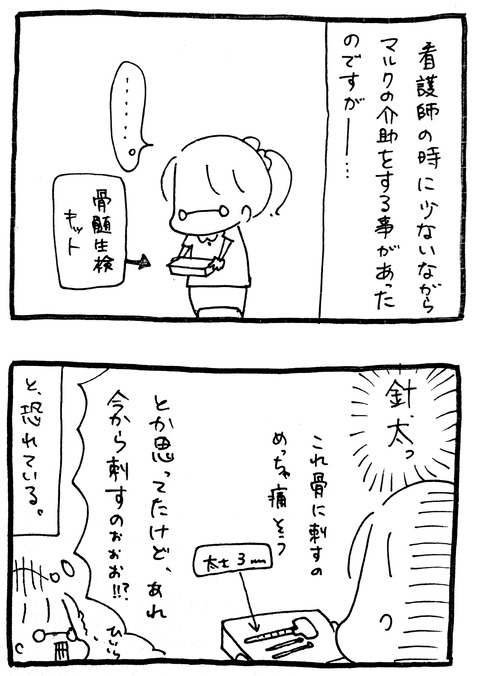 看護師の時に少ないながら
マルクの介助をする事があった
のですが──…
・・・・・・
骨髄生検
キット
針、太っ
これ骨に刺すの
めっちゃ痛そう
太さ3mm
とか思ってたけど、あれ
今から刺すのぉぉぉ!!?
ひぃぃ
と、恐れている。